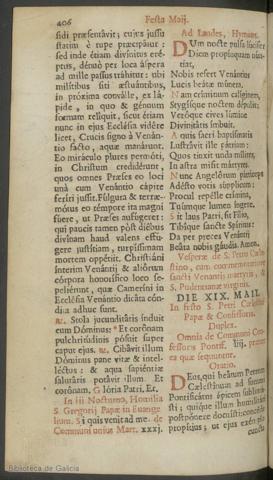 406
Festa Maij.
sidi præsentávit; cujus jussu
statim è rupe præcipitur:
sed inde étiam divínitus eré-
ptus, denuò per loca áspera
ad mille passus tráhitur: ubi
milítibus siti æstuántibus,
in próxima convalle, ex lá-
pide, in quo & génuum
formam relíquit, sicut étiam
nunc in ejus Ecclésia vidére
licet, Crucis signo à Venán-
tio facto, aquæ manárunt.
Eo miráculo plures permóti,
in Christum credidérunt,
quos omnes Præses eo loci
unà cum Venántio cápite
feríri jussit. Fúlgura & terræ-
mótus eo témpore ita magni
fuére, ut Præses aufúgeret:
qui paucis tamen pòst diébus
divínam haud valens effú-
gere justítiam, turpíssimam
mortem oppétiit. Christiáni
ínterim Venántij & aliórum
córpora honorífico loco se-
peliérunt, quæ Cameríni in
Ecclésia Venántio dicáta cón-
dita adhuc sunt.
℟. Stola jucunditátis índuit
eum Dóminus: * Et corónam
pulchritúdinis pósuit super
caput ejus. ℣. Cibávit illum
Dóminus pane vitæ & intel-
léctus: & aqua sapiéntiæ
salutáris potávit illum. Et
corónam. Glória Patri. Et.
In iij Nocturno, Homilia
S. Gregorij Papæ in Evange
lium. Si quis venit ad me. de
Communi unius Mart. xxxj.
Ad Laudes, Hymnus.
DUm nocte pulsa lúcifer
Diem propínquam nún-
tiat,
Nobis refert Venántius
Lucis beátæ múnera.
Nam críminum calíginem,
Stygísque noctem dépulit:
Veróque cives lúmine
Divinitátis ímbuit.
Aquis sacri baptísmatis
Lustrávit ille pátriam:
Quos tinxit unda mílites,
In astra misit mártyres.
Nunc Angelórum párticeps
Adésto votis súpplicum:
Procul repélle crímina,
Tuúmque lumen íngere.
Sit laus Patri, sit Fílio,
Tibíque sancte Spíritus:
Da per preces Venántij
Beáta nobis gáudia. Amen.
Vesperæ de S. Petro Cæle
stino, cum commemoratione
sancti Venantij martyris, &
S. Pudentianæ virginis.
DIE XIX. MAII.
In festo S. Petri Cælestini
Papæ & Confessoris.
Duplex.
Omnia de Communi Con-
fessoris Pontif. præter
ea quæ sequuntur.
Oratio.
DEus, qui beátum Petrum
Cælestínum ad summi
Pontificátus ápicem sublimá-
sti; quique illum humilitáti
postpónere docuísti: concéde
propítius; ut ejus exémplo
cuncta
Biblioteca de Galicia